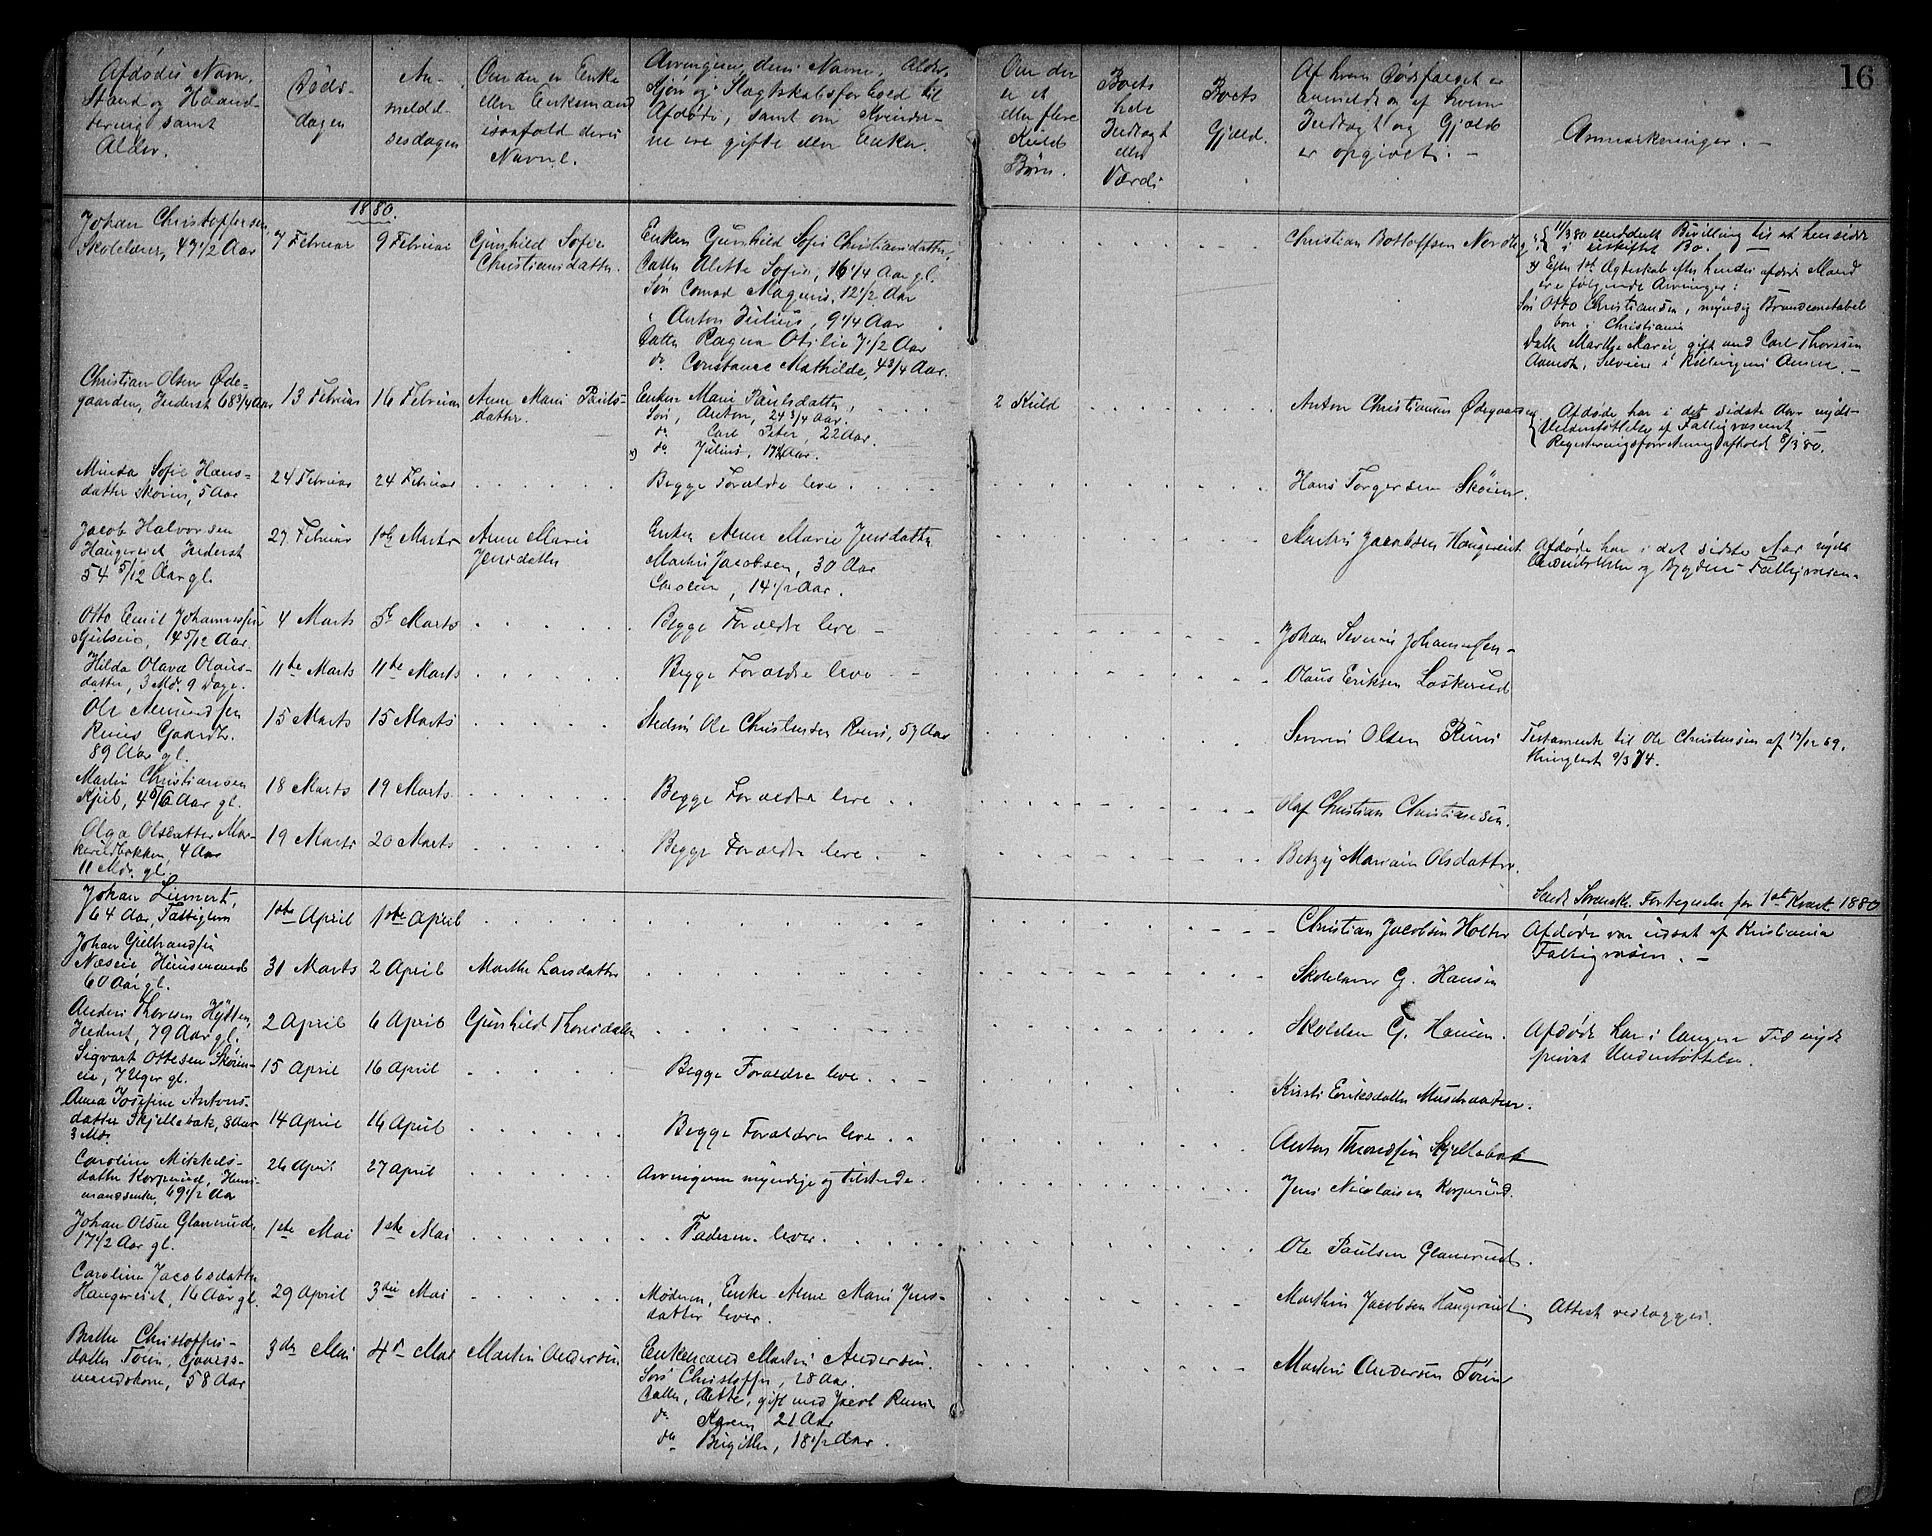 16
Afdødes Navn,
Stand og Haand-
tering samt
Alder.
Døds-
dagen
An-
meldel-
sesdagen
Om der er Enke
eller Enkemand
isaafald deres
Navne.
Arvingerne, deres Navne, Alder,
Kjøn og Slægtskabsforhold til
Afdøde, samt om Kvinder-
ne ere gifte eller Enker.
Om der
er et
eller flere
Kuld
Børn.
Boets
hele
Indtægt
eller
Værdi
Boets
Gjæld.
Af hvem Dødsfaldet er
anmeldt og af hvem
Indtægt og Gjæld
er opgivet. -
Anmærkninger. -
1880.
Johan Christophersen
Skolelærer, 47 1/2 Aar
7 Februar
9 Februar
Gunhild Sofie
Christiansdatter.
Enken Gunhild Sofie Christiansdatter,
Datter Alette Sofie, 16 1/4 Aar gl.
Søn Conrad Magnus, 12 1/2 Aar
" Anton Julius, 9 1/4 Aar
Datter Ragna Otilie 7 1/2 Aar
do. Constance Mathilde, 4 3/4 Aar.
Christian Bottolfsen Nordby
11/3 80 meddelt Bevilling til at hensidde
i uskiftet Bo. -
x) Efter 1ste Ægteskab efter hendes afdøde Mand
ere følgende Arvinger:
Søn Otto Christiansen, myndig Brandconstabel
bor i Christiania
Datter Marthe Marie gift med Carl Thoresen
Aamodt, Selveier i Annex. -
Christian Olsen Øde-
gaarden, Inderst 68 3/4 Aar
13 Februar
16 Februar
Anne Marie Pauls-
datter.
Enken Marie Paulsdatter,
Søn, Anton, 24 3/4 Aar.
do. Carl Peter, 22 Aar.
x) do. Julius, 17 1/2 Aar.
2 Kuld
Anton Christiansen Ødegaarden.
Afdøde har i det sidste Aar nydt
Understøttelse af Fattigvæsenet. -
Registreringsforretning afholdt 8/3 80.
Minda Sofie Hans-
datter Skøien, 5 Aar
24 Februar
24 Februar
Begge Forældre leve
Hans Torgersen Skøien.
Jacob Halvorsen
Haugereiet Inderst
54 5/12 Aar gl.
27 Februar
1ste Marts
Anne Marie
Jensdatter
Enken Anne Marie Jensdatter
Martin Jacobsen, 30 Aar
Caroline, 14 1/2 Aar.
Martin Jacobsen Haugereiet
Afdøde har i det sidste Aar nydt
Understøttelse og Bygdens Fattigvæsen.
Otto Emil Johannesen
14 5/12 Aar.
4 Marts
5te Marts
Begge Forældre leve -
Johan Severin Johannesen -
Hilda Olava Olaus-
datter, 3 Md. 9 Dage.
11te Marts
11te Marts
Begge Forældre leve
Olaus Eriksen Løskerud
Ole Amundsen
Ruus Gaardb.
89 Aar gl.
15 Marts
15 Marts
Stedsøn Ole Christensen Ruus, 57 Aar
Severin Olsen Ruus
Testamente til Ole Christensen af 17/12 69.
thinglæst 9/3 74.
Martin Christiansen
Kjus, 4 5/6 Aar gl.
18 Marts
19 Marts
Begge Forældre leve
Olaf Christian Christiansen.
Olga Olsdatter Mor-
kevildbakken, 4 Aar
11 Md. gl.
19 Marts
20 Marts
Begge Forældre leve.
Betzy Mariane Olsdatter.
Sendt Sorensk. Fortegnelse for 1ste Kvart. 1880
Johan Linnert,
64 Aar, Fattiglem
1ste April
1ste April
Christian Jacobsen Holter
Afdøde var udsat af Kristiania
Fattigvæsen. -
Johan Gulbrandsen
Næseie Huusmand
60 Aar gl.
31 Marts
2 April
Marthe Larsdatter
Skolelærer G. Hansen
Anders Thoresen Hytten,
Inderst, 79 Aar gl.
2 April
6 April
Gunhild Thoresdatter
Skolelær G. Hansen.
Afdøde har i længere Tid nydt
privat Understøttelse.
Sigvart Ottesen Skøien-
eie, 7 Uger gl.
15 April
16 April
Begge Forældre leve.
Kirsti Eriksdatter
Anna Josefine Antons-
datter Skjellebæk, 8 Aar
3 Md.
14 April
16 April
Begge Forældre leve.
Anton Thoresen Skjellebæk
Caroline Mikkels-
datter Korperud, Huus-
mandsenke 69 1/2 Aar
26 April
27 April
Arvingerne myndige og tilstede.
Jens Nicolaisen Korperud.
Johan Olsen Glanerud,
17 1/2 Aar gl.
1ste Mai
1ste Mai
Faderen lever.
Ole Paulsen Glanerud.
Caroline Jacobsdatter
Haugereiet, 16 Aar gl.
29 April
3die Mai
Moderen, Enke Anne Marie Jens-
datter lever.
Marthin Jacobsen Haugereiet
Attest vedlægges.
Berthe Christoffers-
datter Toien, Gaard-
mandskone, 58 Aar
3die Mai
4de Mai
Martin Andersen
Enkemand Martin Andersen.
Søn Christoffer, 28 Aar.
Datter, Alette, gift med Jacob Ruus
do Karen, 21 Aar
do Birgitte, 18 1/2 Aar.
Martin Andersen Toien